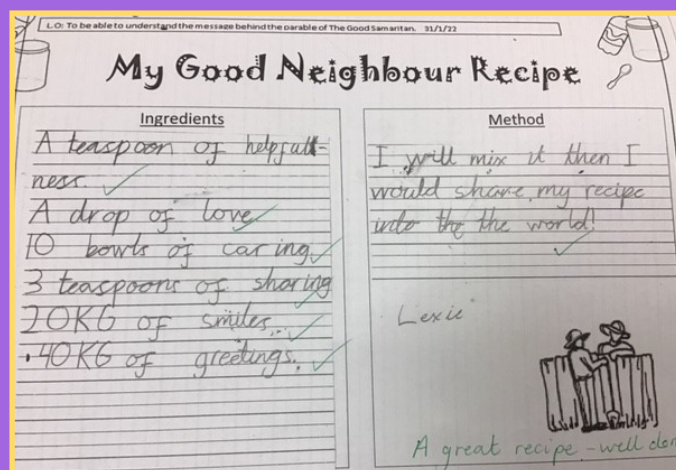 L.O: To be able to understand the message behind the parable of The Good Samaritan. 31/1/22
My Good Neighbour Recipe
Ingredients
A teaspoon of helpfull-
ness.
A drop of love
10 bowls of caring
3 teaspoons of sharing
20KG of smiles.
40KG of greetings.
Method
I will mix it then I
would share my recipe
into the the world!
Lexie
A great recipe - well don